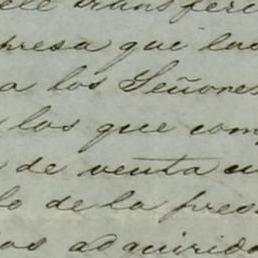 ele transferi
presa que los
a los Señores
los que comp
de venta cu
lo de la pres
los adquirido